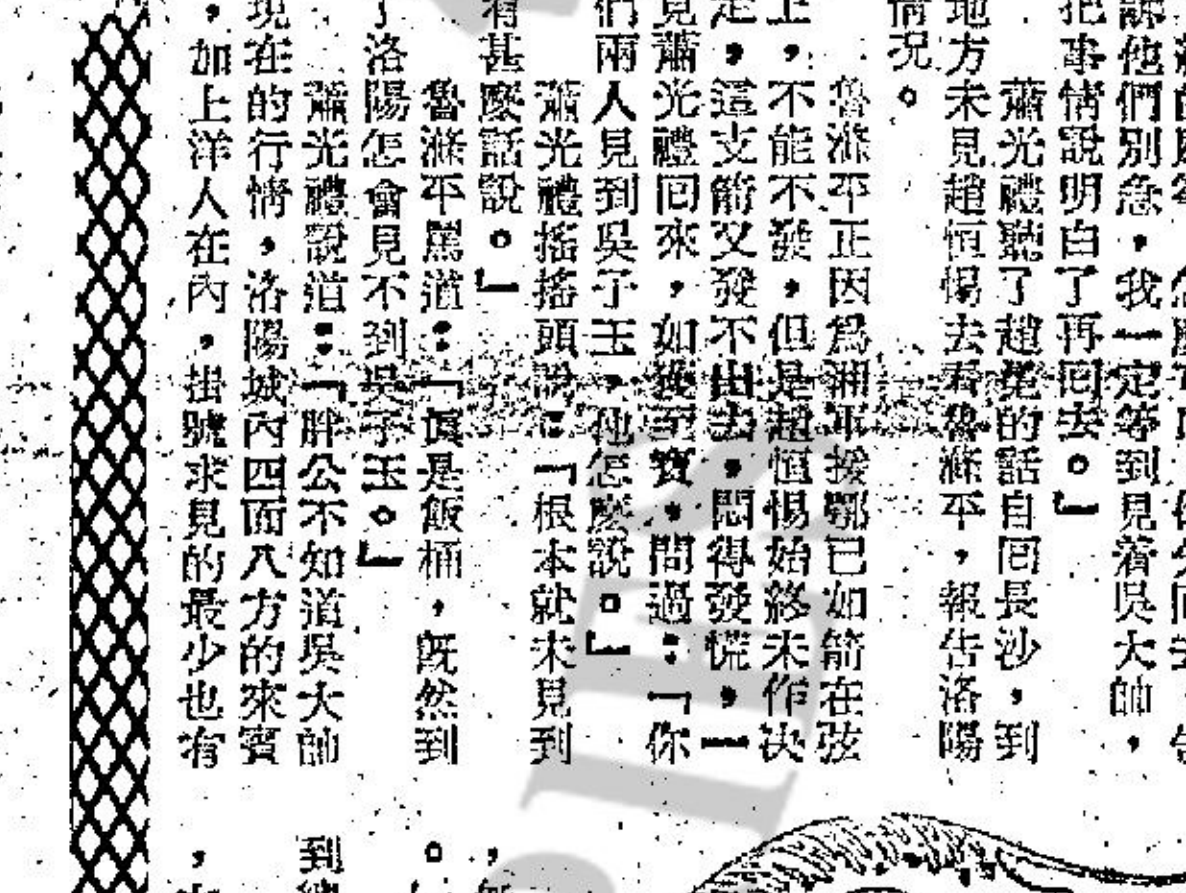 訴他們別急，我一定等到見着吳大帥，
把事情說明白了再回去。」
蕭光禮聽了趙堯的話自回長沙，到
地方未見趙恒惕去看魯滌平，報告洛陽
情況。
魯滌平正因為湘軍援鄂已如箭在弦
上，不能不發，但是趙恒惕始終未作決
走，這支箭又發不出去，悶得發慌，一
見蕭光禮回來，如獲至寶，問過：「你
們兩人見到吳子玉，他怎麼說。」
蕭光禮搖搖頭說：「根本就未見到
有甚麼話說。」
魯滌平罵道：「真是飯桶，既然到
了洛陽怎會見不到吳子玉。」
蕭光禮說道：「胖公不知道吳大帥
現在的行情，洛陽城內四面八方的來賓
，加上洋人在內，掛號求見的最少也有
到